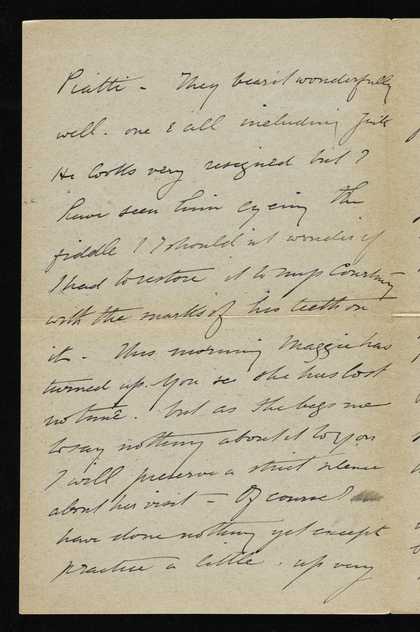 Piatti - They bear it wonderfully
well. one & all including Fritz
He looks very resigned but I
have seen him eyeing the
fiddle & I shouldn't wonder if
I had to restore it to Miss Courtenay
with the marks of his teeth on
it - This morning Maggie has
turned up. You see she has lost
no time. but as she begs me
to say nothing about it to you
I will preserve a strict silence
about her visit - Of course I
have done nothing yet except
practice a little. up very